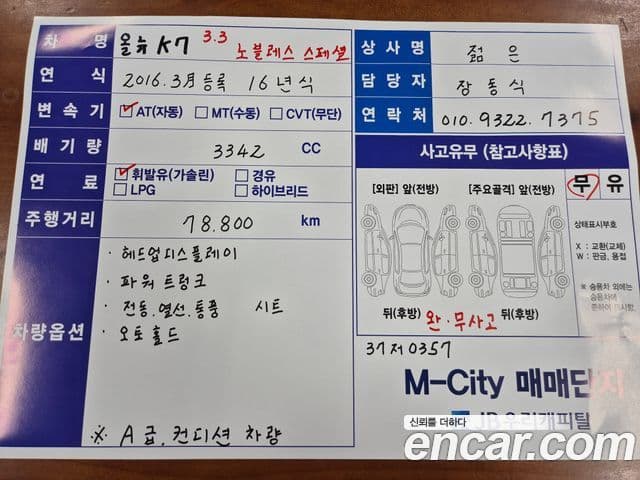 차 명 올뉴 K7 3.3 노블레스 스페셜
연 식 2016.3月등록 16년식
변 속 기 ☑AT(자동) □MT(수동) □CVT(무단)
배 기 량 3342 CC
연 료 ☑휘발유(가솔린) □경유
□LPG □하이브리드
주행거리 78.800 km
차량옵션
· 헤드업디스플레이
· 파워트렁크
· 전동.열선.통풍 시트
· 오토홀드
※ A급.컨디션 차량
상 사 명 젊은
담 당 자 장동식
연 락 처 010.9322.7375
사고유무 (참고사항표)
[외판] 앞(전방) [주요골격] 앞(전방)
무 유
상태표시부호
X : 교환(교체)
W : 판금, 용접
※ 승용차 외에는
승용차에
준하여 표시함.
뒤(후방) 완.무사고 뒤(후방)
37저0357
M-City 매매단지
JB우리캐피탈
신뢰를 더하다
encar.com